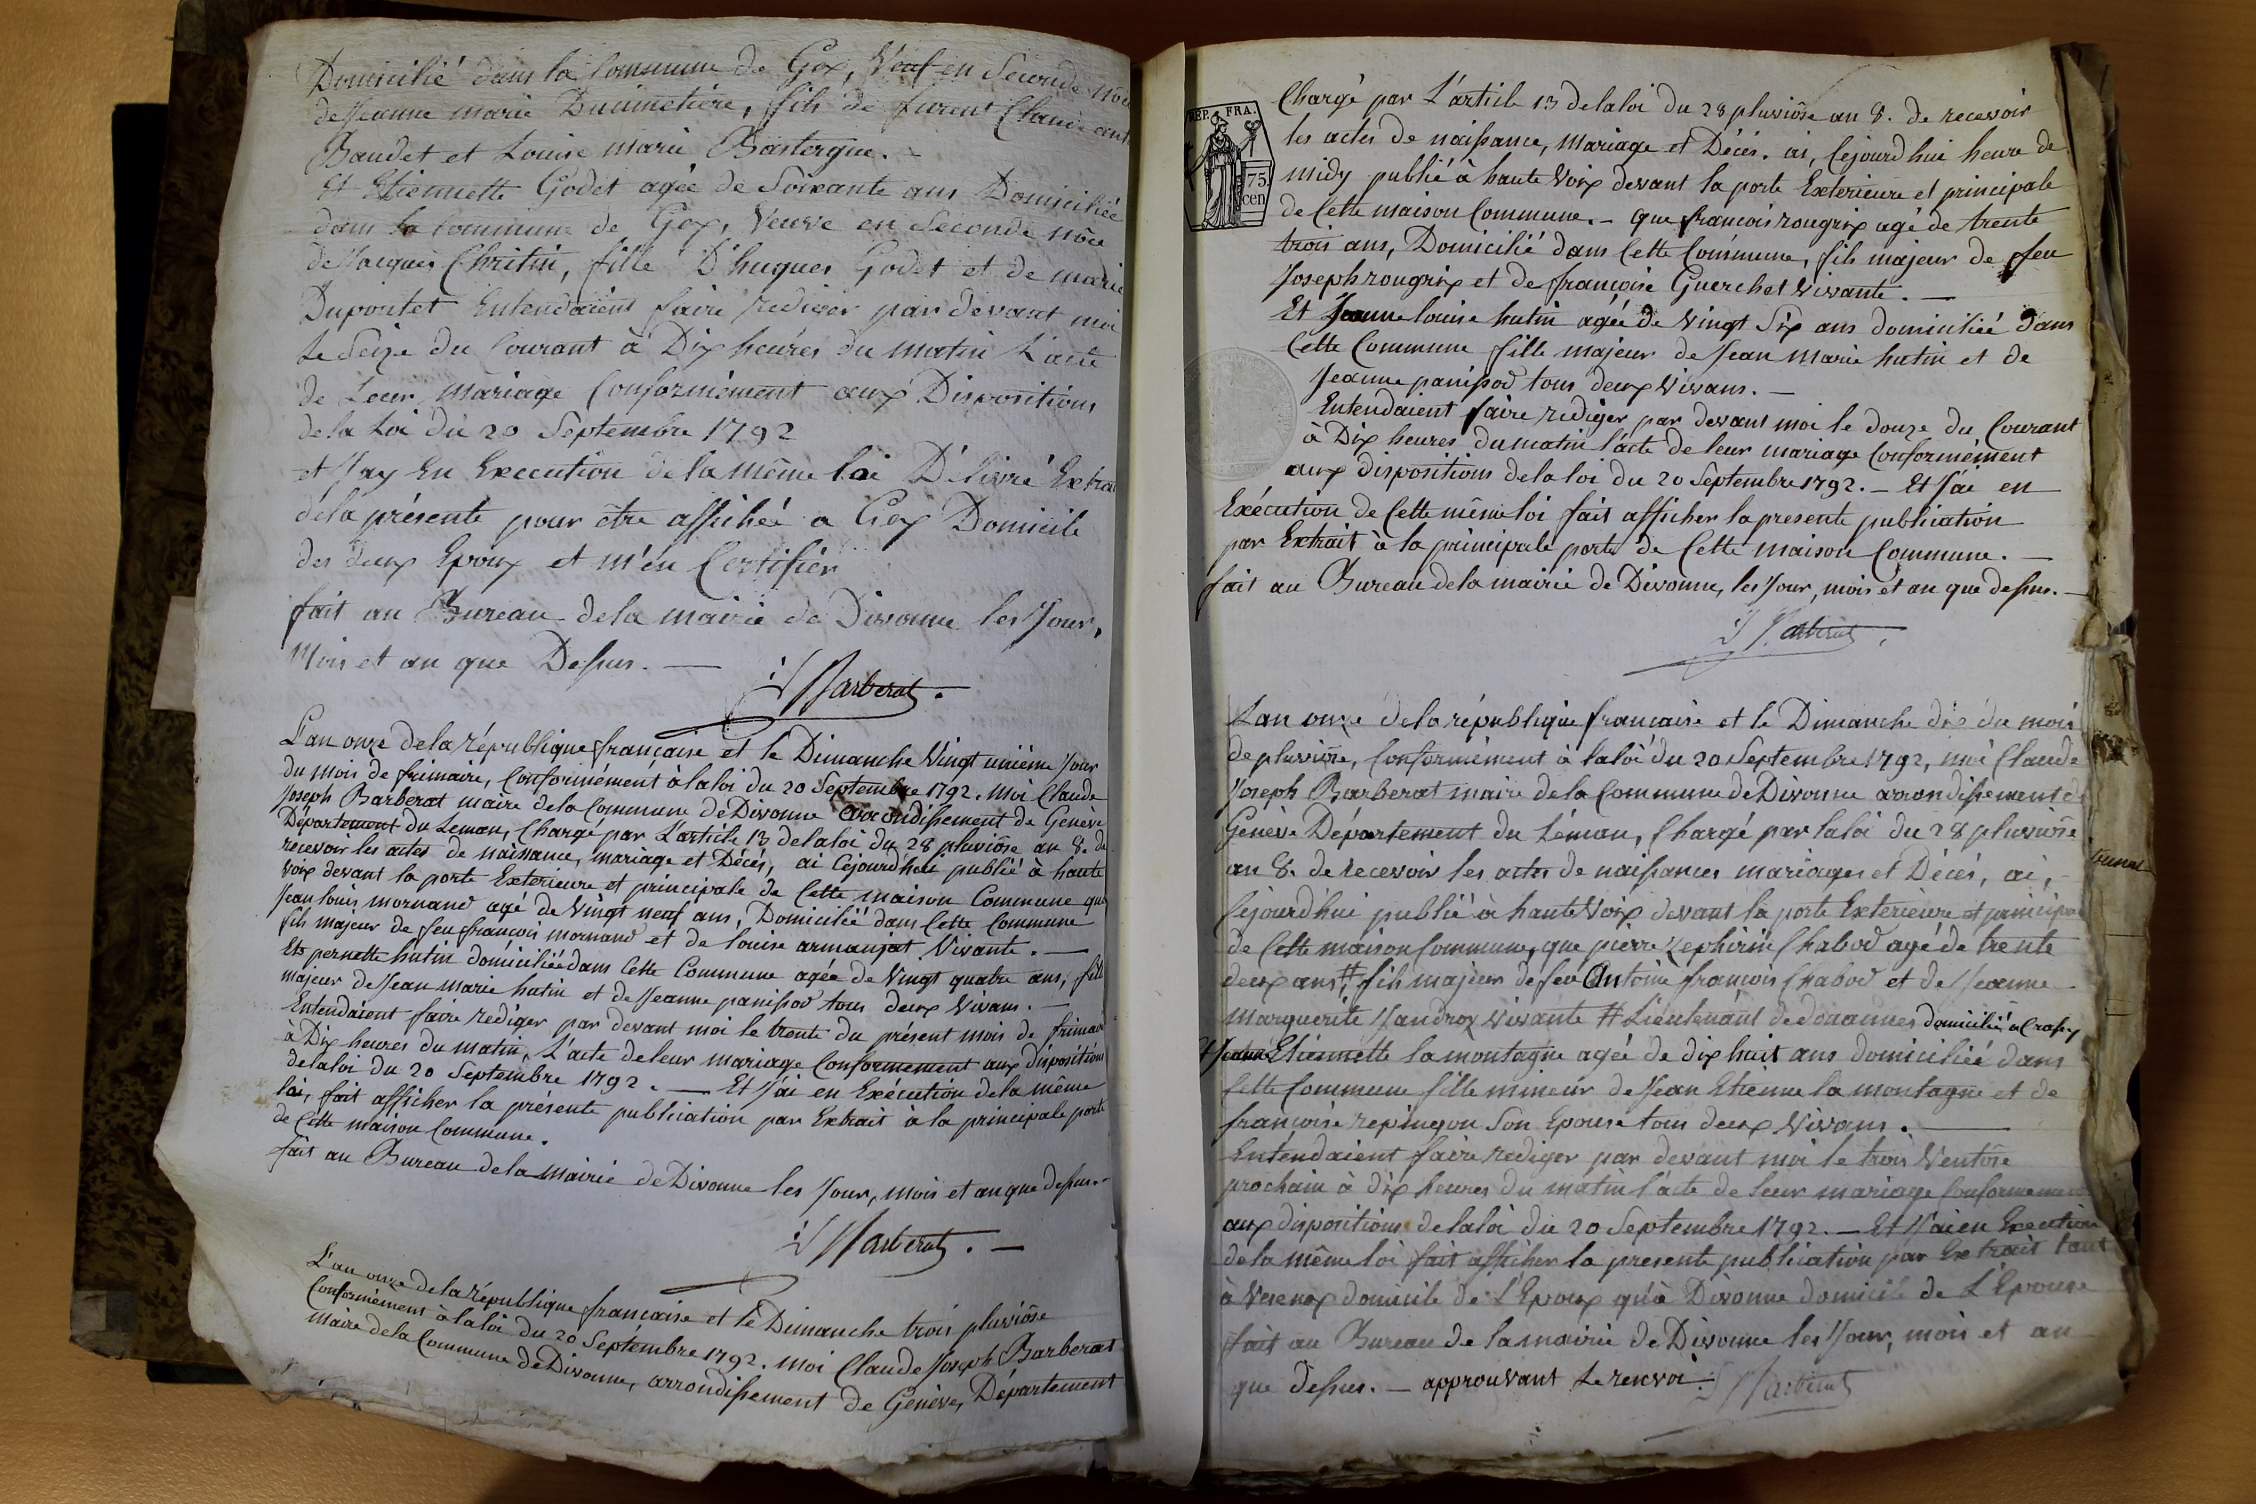 Domicilié dans la Commune de Gex, Veuf en Seconde Noce
de Jeanne marie Ducimetiere, fils de furent Claude ant
Baudet et Louise marie Bastergue. -
Et Etiennette Godet agée de Soixante ans Domiciliée
dans la Commune de Gex, Veuve en Seconde nôce
de Jacques Chritin, fille D'hugues Godet et de marie
Dupontet Entendaient faire rediger par devant moi
Le Seize du Courant à Dix heures du matin L'acte
de Leur mariage Conformément aux Dispositions
de la Loi du 20 Septembre 1792
et J'ay En Execution de la même loi Délivré Extrai
de la présente pour être affichée a Gex Domicile
des deux Epoux et m'en Certifier
fait au Bureau de la mairie de Divonne les Jour,
Mois et an que Dessus. —
Barberat.
L'an onze de la république française et le Dimanche Vingt unième Jour
du mois de frimaire, Conformément à la loi du 20 Septembre 1792. Moi Claude
Joseph Barberat maire de la Commune de Divonne arrondissement de Geneve
Département du Leman, Chargé par L'article 13 de la loi du 28 pluviôse an 8. de
recevoir les actes de naissance, mariage et Décès, ai Cejourd'hui publié à haute
Voix devant la porte Exterieure et principale de Cette maison Commune que
Jean louis mornand agé de Vingt neuf ans, Domicilié dans Cette Commune
fils majeur de feu françois mornand et de louise armanjat Vivante. —
Et pernette hutin domiciliée dans Cette Commune agée de Vingt quatre ans, fille
majeur de Jean marie hutin et de Jeanne panissod tous deux Vivans. —
Entendaient faire rediger par devant moi le trente du présent mois de frimaire
à Dix heures du matin, L'acte de leur mariage Conformement aux dispositions
de la loi du 20 Septembre 1792. — Et J'ai en Exécution de la même
loi, fait afficher la présente publication par Extrait à la principale porte
de Cette maison Commune.
fait au Bureau de la mairie de Divonne les Jour, mois et an que dessus. -
Barberat. —
L'an onze de la république française et le Dimanche trois pluviôse
Conformément à la loi du 20 Septembre 1792. moi Claude Joseph Barberat
maire de la Commune de Divonne, arrondissement de Genève, Département
REP. FRA.
75
cen
Chargé par L'article 13 de la loi du 28 pluviôse an 8. de recevoir
les actes de naissance, mariage et Décès. ai, Cejourd'hui heure de
midy publié à haute Voix devant la porte Exterieure et principale
de Cette maison Commune. - que françois rougrix agé de trente
trois ans, Domicilié dans Cette Commune, fils majeur de feu
Joseph rougrix et de françoise Guerchet Vivante. —
Et Jeanne louise hutin agée de Vingt Six ans domiciliée dans
Cette Commune fille majeur de Jean marie hutin et de
Jeanne panissod tous deux Vivans. —
Entendaient faire rediger par devant moi le douze du Courant
à Dix heures du matin l'acte de leur mariage Conformément
aux dispositions de la loi du 20 Septembre 1792. — Et J'ai en
Exécution de Cette même loi fait afficher la presente publication
par Extrait à la principale porte de Cette maison Commune. —
fait au Bureau de la mairie de Divonne, les Jour, mois et an que dessus. —
Barberat.
L'an onze de la république française et le Dimanche dix du mois
de pluviôse, Conformément à la loi du 20 Septembre 1792, moi Claude
Joseph Barberat maire de la Commune de Divonne arrondissement de
Genève Département du Léman, Chargé par la loi du 28 pluviôse
an 8. de recevoir les actes de naissances mariages et Décés, ai,
Cejourd'hui publié à haute Voix devant la porte Exterieure et principa
de Cette maison Commune, que pierre Zephirin Chabod agé de trente
deux ans, # fils majeur de feu Antoine françois Chabod et de Jeanne
Marguerite Jandroz Vivante # Lieutenant de douannes domicilié a Crassy
Et Jeanne Etiennette la montagne agée de dix huit ans domiciliée dans
Cette Commune fille mineur de Jean Etienne la montagne et de
françoise repingon Son Epouse tous deux Vivans. —
Entendaient faire rediger par devant moi le trois Ventôse
prochain à dix heures du matin l'acte de leur mariage Conformement
aux dispositions de la loi du 20 Septembre 1792. — Et J'ai en Execution
de la même loi fait afficher la presente publication par Extrait tant
à Vesenex domicile de L'Epoux qu'à Divonne domicile de L'Epouse
fait au Bureau de la mairie de Divonne les Jour, mois et an
que dessus. — approuvant Le renvoi.
Barberat